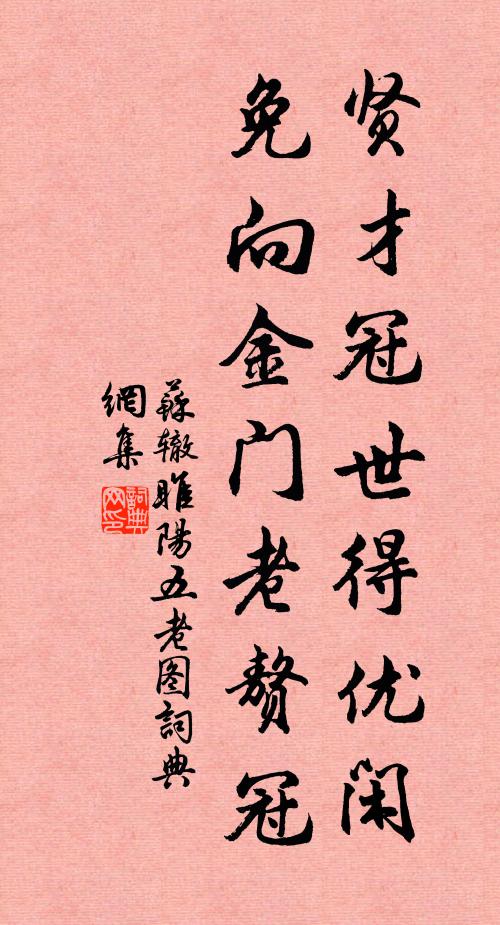 贤才冠世得优闲
免向金门老赘冠
蘇辙睢陽五老图詞典
網集
詞典网印